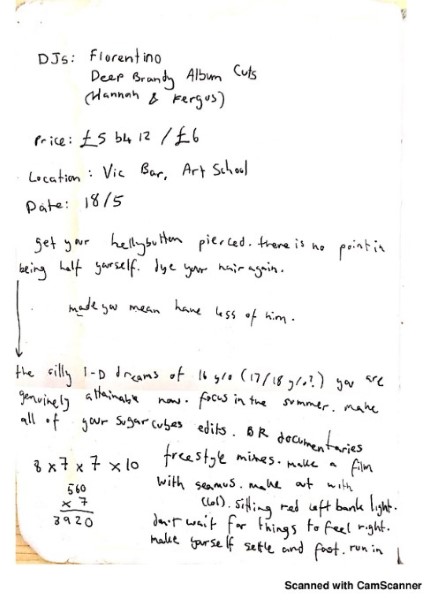 DJs: Florentino
Deep Brandy Album Cuts
(Hannah & Fergus)
Price: £5 b4 12 / £6
Location: Vic Bar, Art School
Date: 18/5
get your bellybutton pierced. there is no point in
being half yourself. dye your hair again.
made you mean have less of him.
the silly i-D dreams of 16 y/o (17/18 y/o?) you are
genuinely attainable now. focus in the summer. make
all of your sugarcubes edits. BR documentaries
freestyle mixes. make a film
with seamus. make out with
(lol). sitting red left bank light.
don't wait for things to feel right.
make yourself settle and foot. run in
8 x 7 x 7 x 10
560
x 7
3920
Scanned with CamScanner